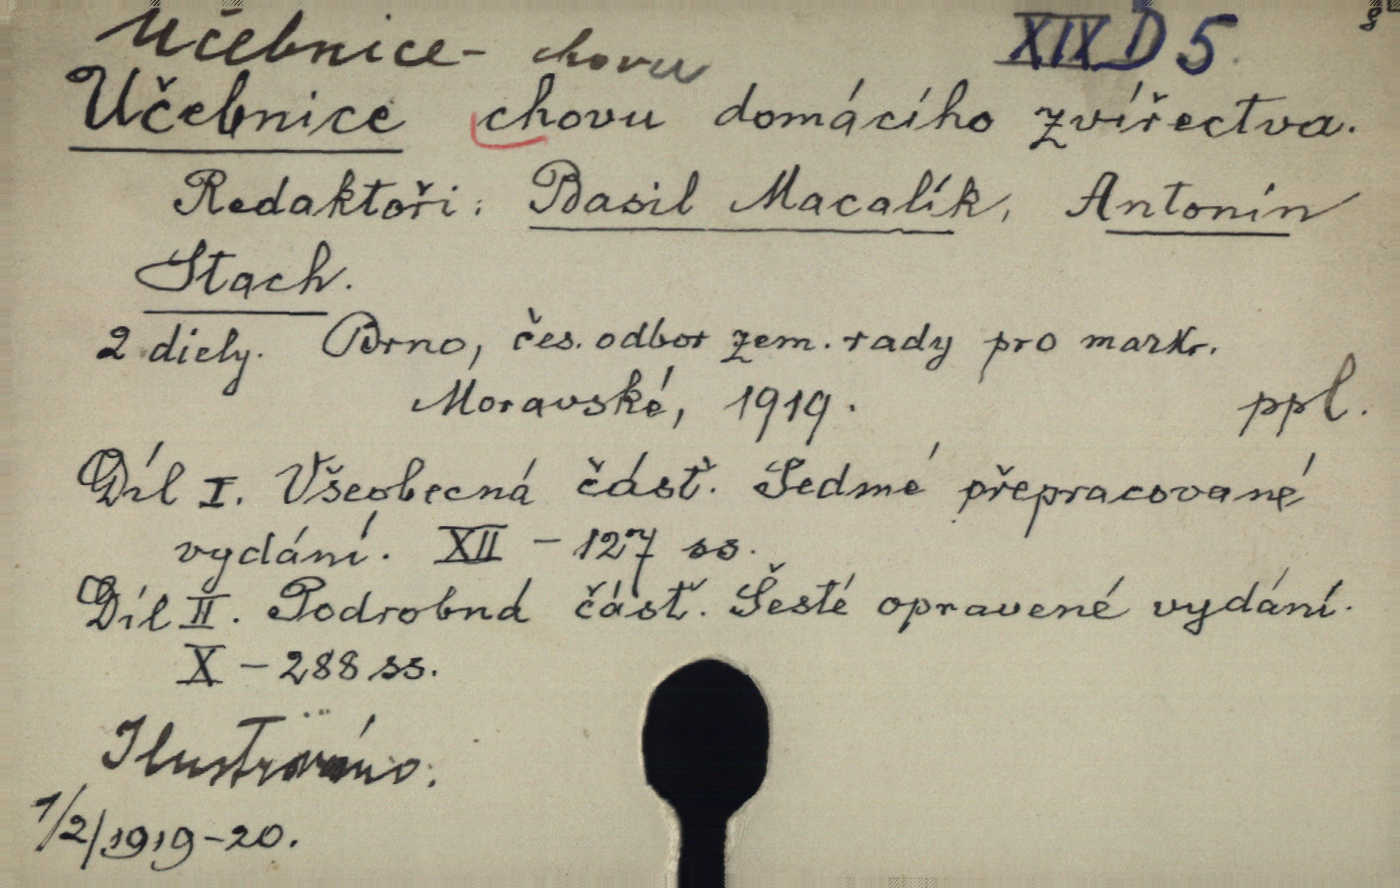 Učebnice - chovu XIX D 5
Učebnice chovu domácího zvířectva.
Redaktoři: Basil Macalík, Antonín
Stach.
2 diely. Brno, čes. odbor zem. rady pro markr.
Moravské, 1919. ppl.
Díl I. Všeobecná část. Sedmé přepracované
vydání. XII - 127 ss.
Díl II. Podrobná část. Šesté opravené vydání.
X - 288 ss.
Ilustrováno.
1/2/1919-20.